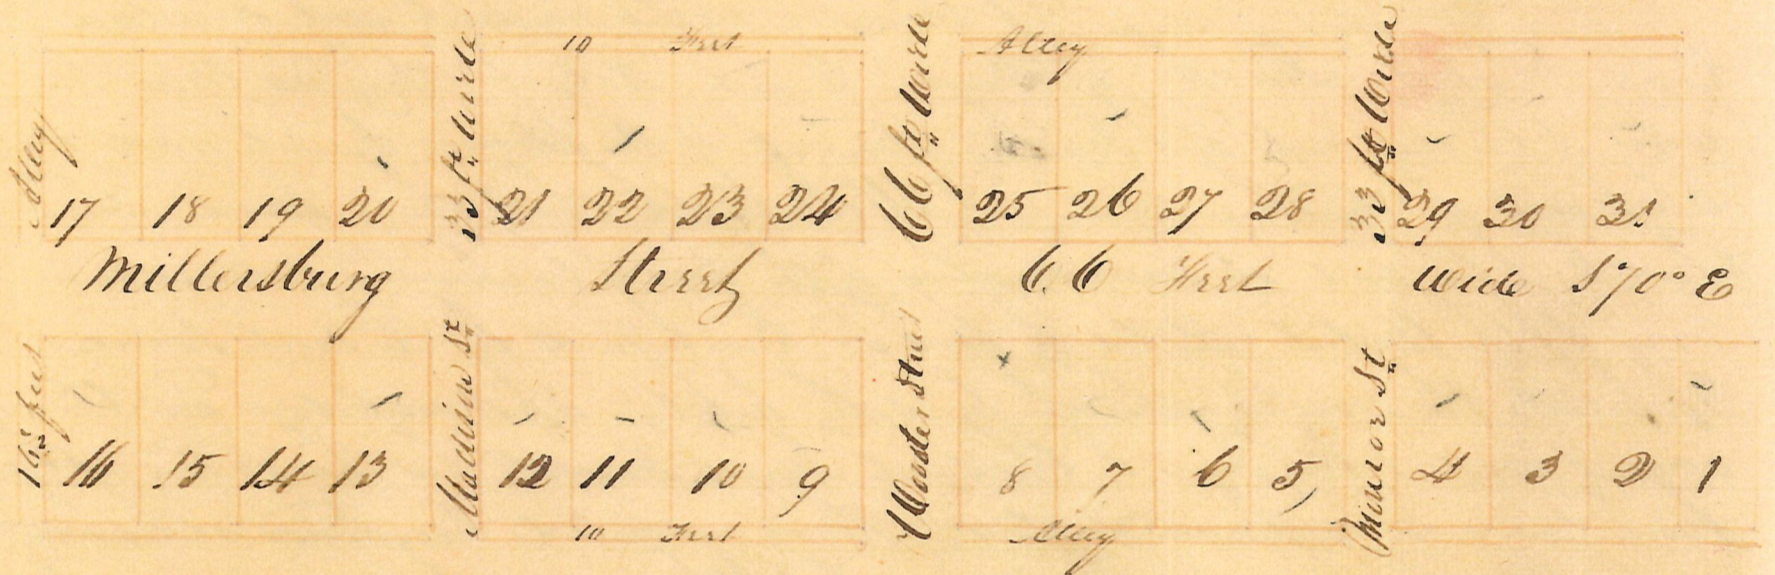 10 Feet Alley
Alley
33 ft Wide
66 ft Wide
33 ft Wide
17 18 19 20 21 22 23 24 25 26 27 28 29 30 31
Millersburg Street 66 Feet Wide S 70° E
16 1/2 feet
Madison St
Wooster Street
Monroe St
16 15 14 13 12 11 10 9 8 7 6 5, 4 3 2 1
10 Feet Alley